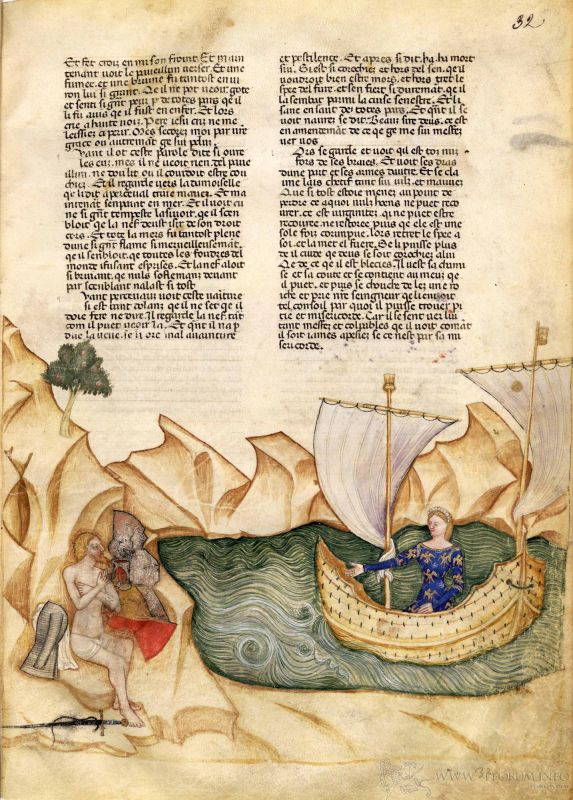 Et fet croiz en mi son front. Et main
tenant voit le paveillon verser. Et une
fumee. et une brume fu tantost en vi
ron lui si grant. Qe il ne pot veoir gote
et senti si grant de totes pars qe il
li fu avis qe il fust en enfer. Et lors
crie a haute voiz. Pere ihu criz ne me
lessiez ci perir. Mes secorez moi par vre
grace ou autrement ge sui peri.
Vant il ot ceste parole dite si ovre
les euz. mes il ne veoit rien del pave
illon. ne dou lit ou il estre cou
chiez. Et il regarde vers la damoiselle
qe li dist a perceval maves. Et ma
intenant en mer. Et il voit
ne si grant tempeste la sivoit. qe il sen
bloit qe la nef deust de son droit
cors. Et tote la mers fu tantost plene
dune si grant flame si merveilleusemant.
qe il senbloit. qe toutes les foudres del
monde fusant esprises. Et la nef aloit
si bruiant. qe nuls soflemanz devant
par senblant nalast si tost
Vant percevaus voit ceste
si est tant dolanz qe il ne set qe il
doie fere ne dire. Il regarde la nef tāt
com il puet veoir la. Et qnt il na p
due la veue. si li ore mal aventure
32
et pestilence. Et apres si dit. ha. ha mort
sui. Si est si corochiez et hors del sen. qe il
voudroit bien estre mors. et hors tret se
spee del fure. et sen fiert si durement. qe il
la senbat parmi la cuise senestre. Et li
sanc en saut de totes pars. Et qnt il se
voit navrez se dit. Beau sire deus. ce est
en amendemant de ce qe ge me sui mesfez
vers vos.
Ors se garde et voit qil est toz nuz
fors de ses braies. Et voit ses dras
dune part et ses armes dautre. Et se cla
me lais chetif tant sui vilz. et mauves
Que si tost estoie menez au point de
perdre ce aquoi nulz homs ne puet reco
vrer. ce est virginitez. qe ne puet estre
recovree. ne restoree puis qe ele est une
sole foiz corumpue. lors retret le spee a
soi. et la met el fuere. Se li poise plus
de il cuide qe deus se soit corochiez alui
Qe de ce qe il est blecies. Il vest sa chemi
se et sa coute et se contient au meuz qe
il puet. et puis se chouche de lez une ro
iche et prie nre seingneur qe li envoit
tel consoil. par quoi il puisse trover pi
tie et misericorde. Car il se sent vers lui
tant mesfez et colpables qe il voit
il soit iames apesiez se ce nest par sa mi
sericorde.
WWW.3PFORUM.INFO